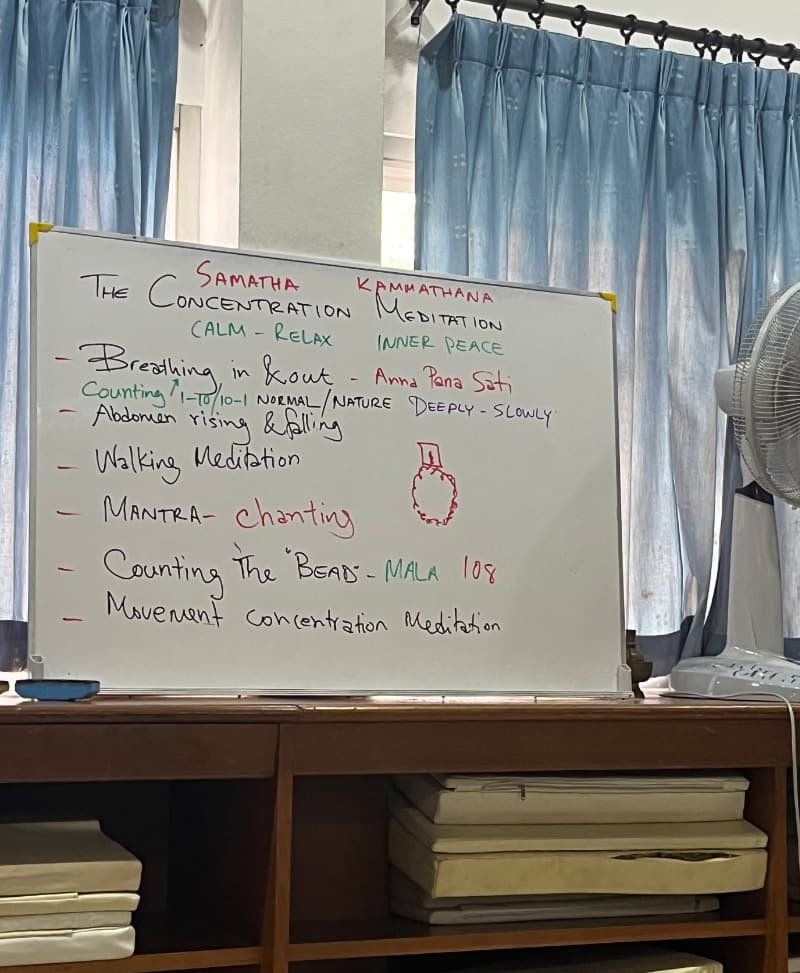 SAMATHA KAMMATHANA
THE CONCENTRATION MEDITATION
CALM - RELAX INNER PEACE
- Breathing in & out - Anna Pana Sati
Counting 1-10/10-1 NORMAL/NATURE DEEPLY - SLOWLY
- Abdomen rising & falling
- Walking Meditation
- MANTRA - chanting
- Counting The "BEAD" - MALA 108
- Movement Concentration Meditation